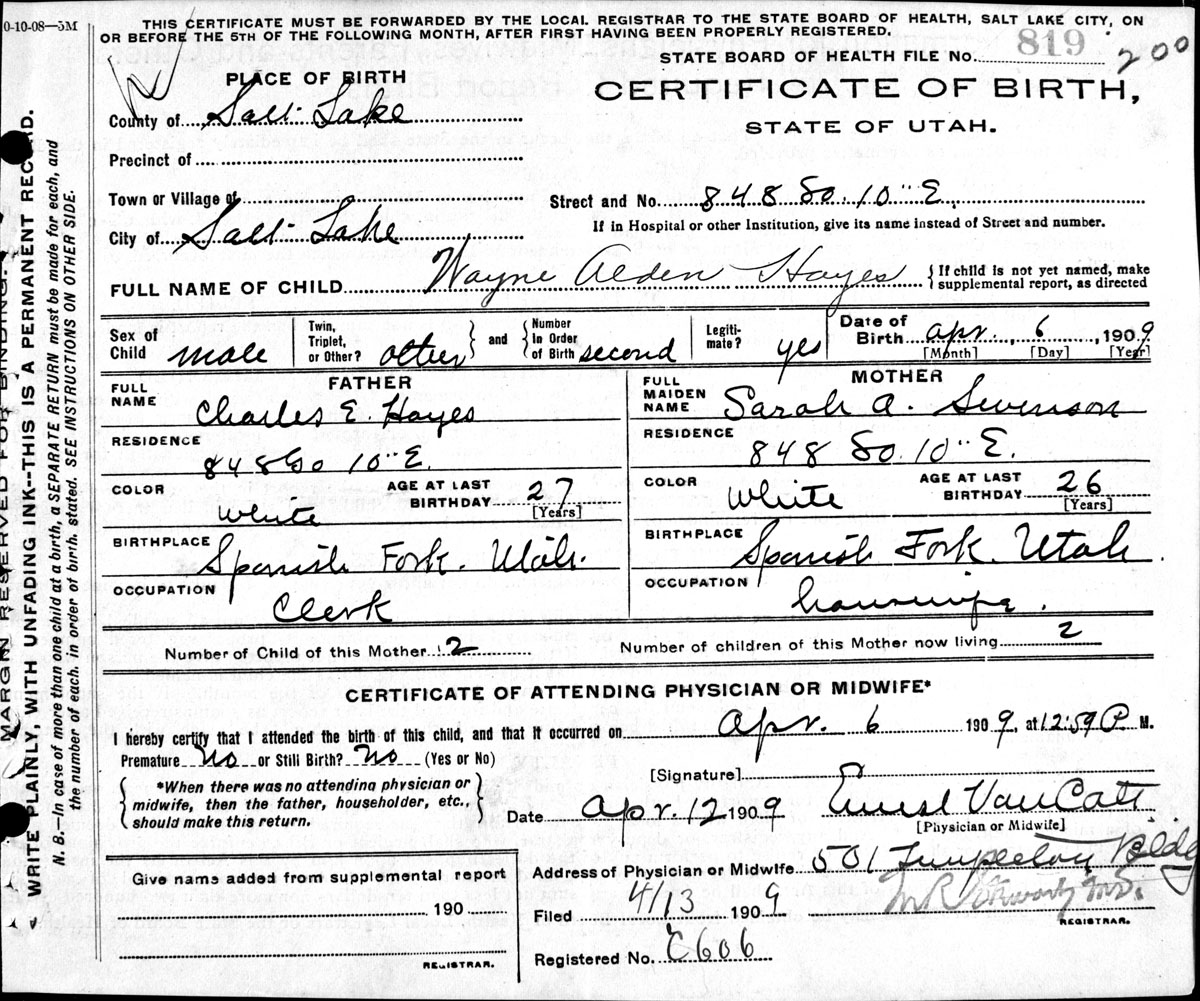 0-10-08—5M
THIS CERTIFICATE MUST BE FORWARDED BY THE LOCAL REGISTRAR TO THE STATE BOARD OF HEALTH, SALT LAKE CITY, ON
OR BEFORE THE 5TH OF THE FOLLOWING MONTH, AFTER FIRST HAVING BEEN PROPERLY REGISTERED.
STATE BOARD OF HEALTH FILE No. 819
200
PLACE OF BIRTH
CERTIFICATE OF BIRTH,
STATE OF UTAH.
County of Salt Lake
Precinct of
Town or Village of
Street and No. 848 So. 10" E.
City of Salt Lake
If in Hospital or other Institution, give its name instead of Street and number.
FULL NAME OF CHILD Wayne Alden Hayes
{If child is not yet named, make
supplemental report, as directed
Sex of Child male
Twin, Triplet, or Other? other
and
Number In Order of Birth second
Legiti-mate? yes
Date of Birth Apr. 6, 1909
[Month] [Day] [Year]
FATHER
FULL NAME Charles E. Hayes
RESIDENCE 848 So 10" E.
COLOR White
AGE AT LAST BIRTHDAY 27
[Years]
BIRTHPLACE Spanish Fork. Utah.
OCCUPATION Clerk
MOTHER
FULL MAIDEN NAME Sarah A. Swenson
RESIDENCE 848 So. 10" E.
COLOR White
AGE AT LAST BIRTHDAY 26
[Years]
BIRTHPLACE Spanish Fork. Utah
OCCUPATION housewife.
Number of Child of this Mother 2
Number of children of this Mother now living 2
CERTIFICATE OF ATTENDING PHYSICIAN OR MIDWIFE*
I hereby certify that I attended the birth of this child, and that it occurred on Apr. 6 1909, at 12:59 P M.
Premature No or Still Birth? No (Yes or No)
*When there was no attending physician or
midwife, then the father, householder, etc.,
should make this return.
[Signature]
Date Apr. 12 1909 Ernest Van Cott
[Physician or Midwife]
Give name added from supplemental report
190
REGISTRAR.
Address of Physician or Midwife 501 Templeton Bldg
Filed 4/13 1909
REGISTRAR.
Registered No. C606
MARGIN RESERVED FOR BINDING.
WRITE PLAINLY, WITH UNFADING INK--THIS IS A PERMANENT RECORD.
N. B.—In case of more than one child at a birth, a SEPARATE RETURN must be made for each, and
the number of each, in order of birth, stated. SEE INSTRUCTIONS ON OTHER SIDE.